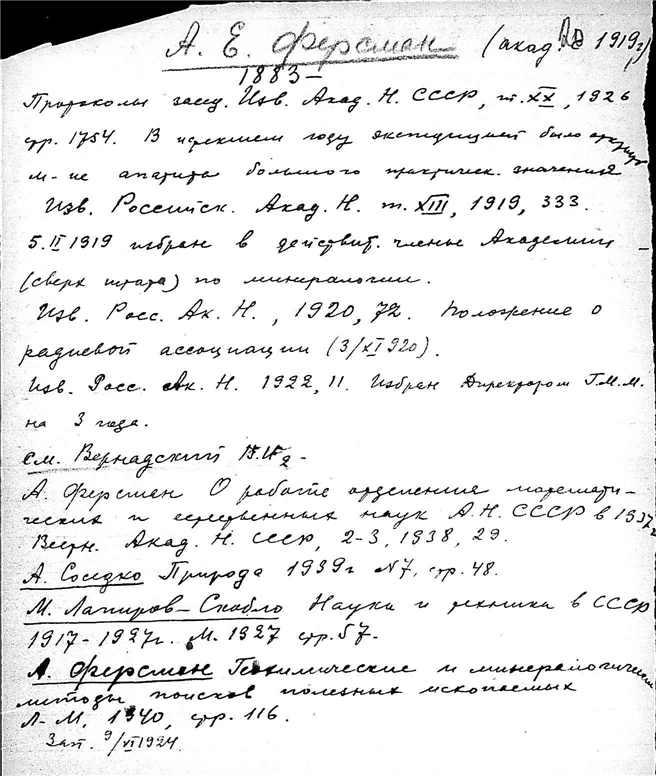 А. Е. Ферсман (акад. 1919г)
1883–
Протоколы засед. Изв. Акад. Н. СССР, т. XX, 1926
стр. 1754. В истекшем году экспедицией было открыто
м-ие апатита большого практическ. значения
Изв. Российск. Акад. Н. т. XIII, 1919, 333.
5.II 1919 избран в действит. члены Академии –
(сверх штата) по минералогии.
Изв. Росс. Ак. Н., 1920, 72. Положение о
радиевой ассоциации (3/XI 920).
Изв. Росс. Ак. Н. 1922, 11. Избран Директором Г.М.М.
на 3 года.
см. Вернадский
А. Ферсман О работе отделения математи-
ческих и естественных наук А.Н. СССР в 1937г
Вестн. Акад. Н. СССР, 2-3, 1938, 29.
А. Соседко Природа 1939г N7, стр. 48.
М. Лапиров-Скобло Наука и техника в СССР
1917-1927г. М. 1927 стр. 57.
А. Ферсман Геохимические и минералогические
методы поисков полезных ископаемых
Л-М. 1940, стр. 116.
Зап. 9/VI 1924.